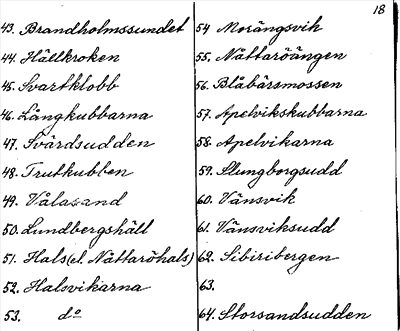 18
43. Brandholmssundet
44. Hällkroken
45. Svartklobb
46. Långkubbarna
47. Svärdsudden
48. Trutkubben
49. Vålasand
50. Lundbergshäll
51. Hals (el. Nåttaröhals)
52. Halsvikarna
53. do
54 Morängsvik
55. Nåttaröängen
56. Blåbärsmossen
57. Apelvikskubbarna
58. Apelvikarna
59. Slungborgsudd
60. Vänsvik
61. Vänsviksudd
62. Sibiribergen
63.
64. Storsandsudden